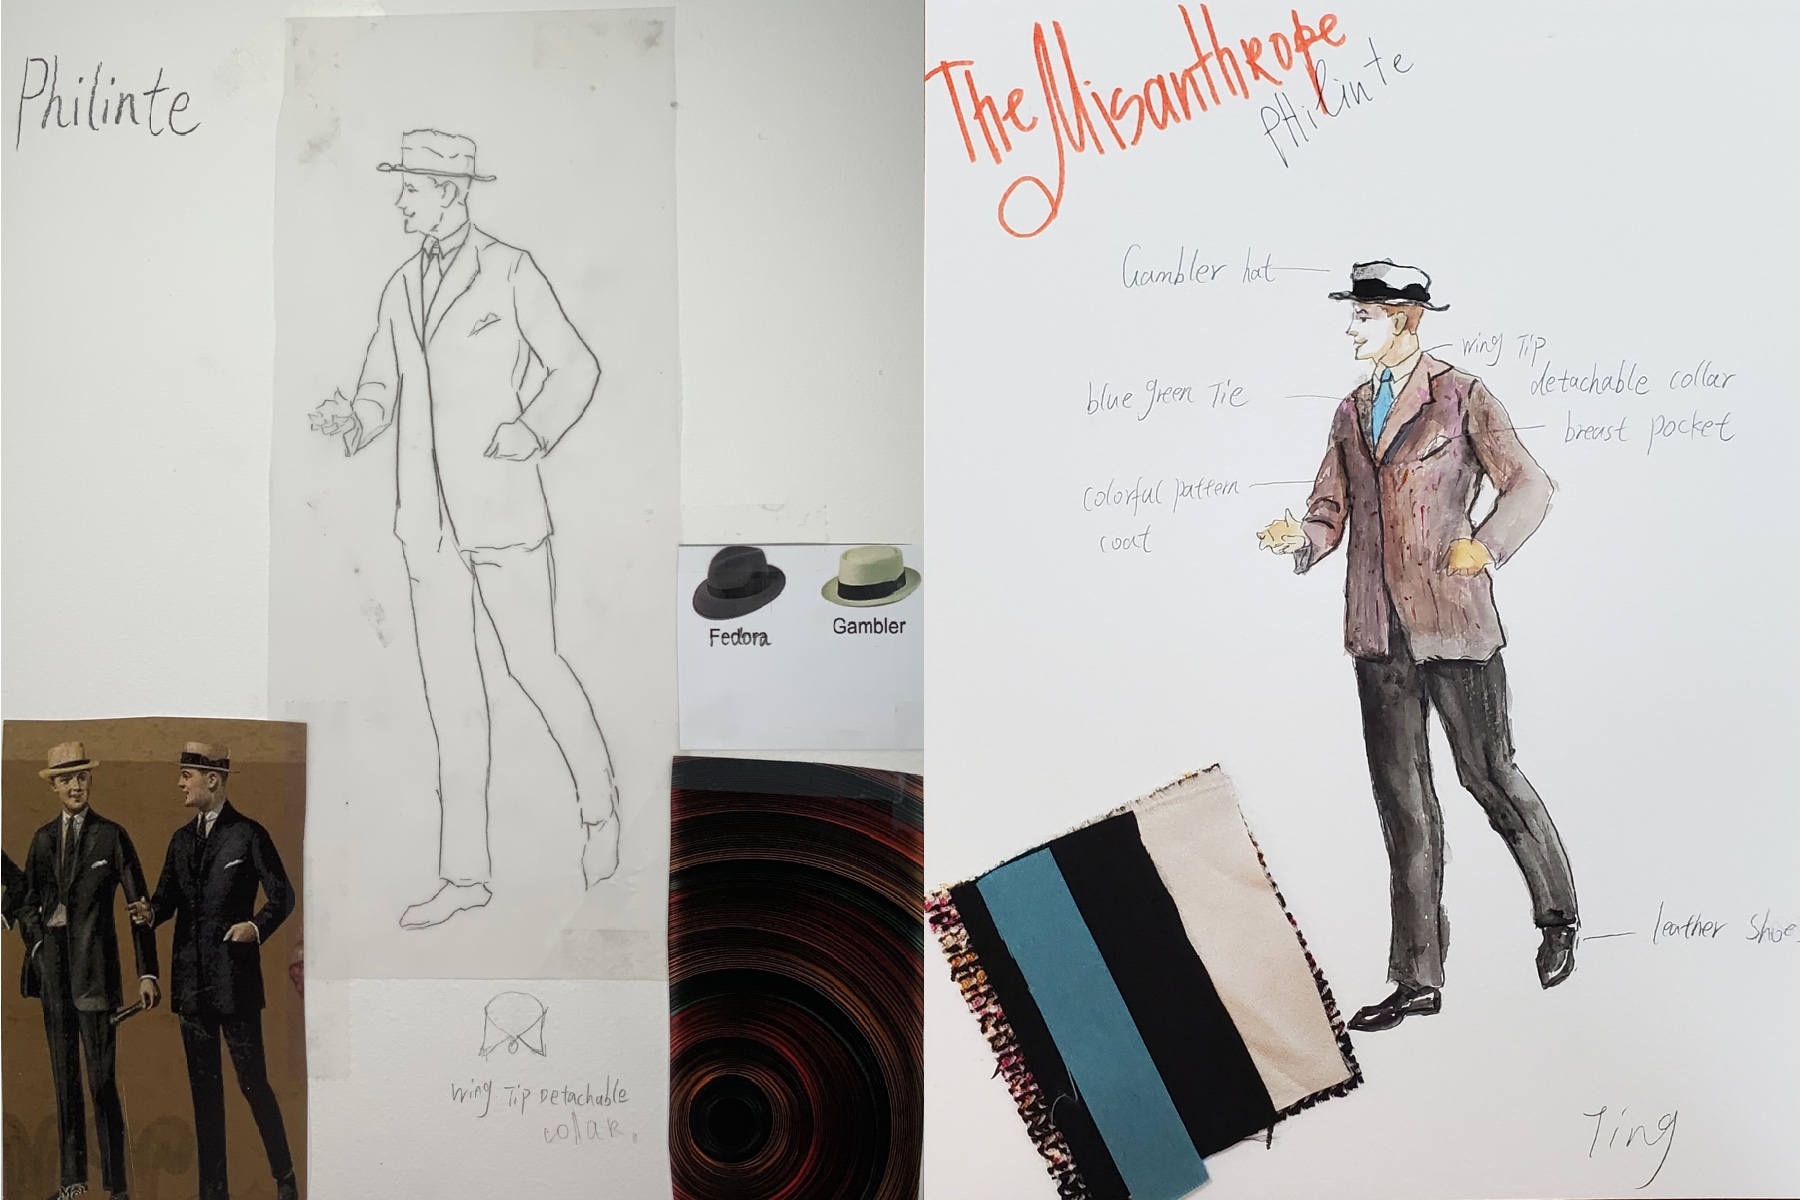 Philinte
Fedora
Gambler
wing Tip Detachable
collar.
The Misanthrope
PHilinte
Gambler hat
wing Tip
detachable collar
blue green Tie
breast pocket
colorful pattern
coat
leather Shoe
Ting